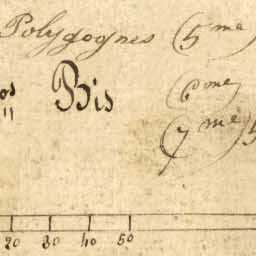 Polygognes (5me)
os Bis (6me
" (7me) 5
20 30 40 50